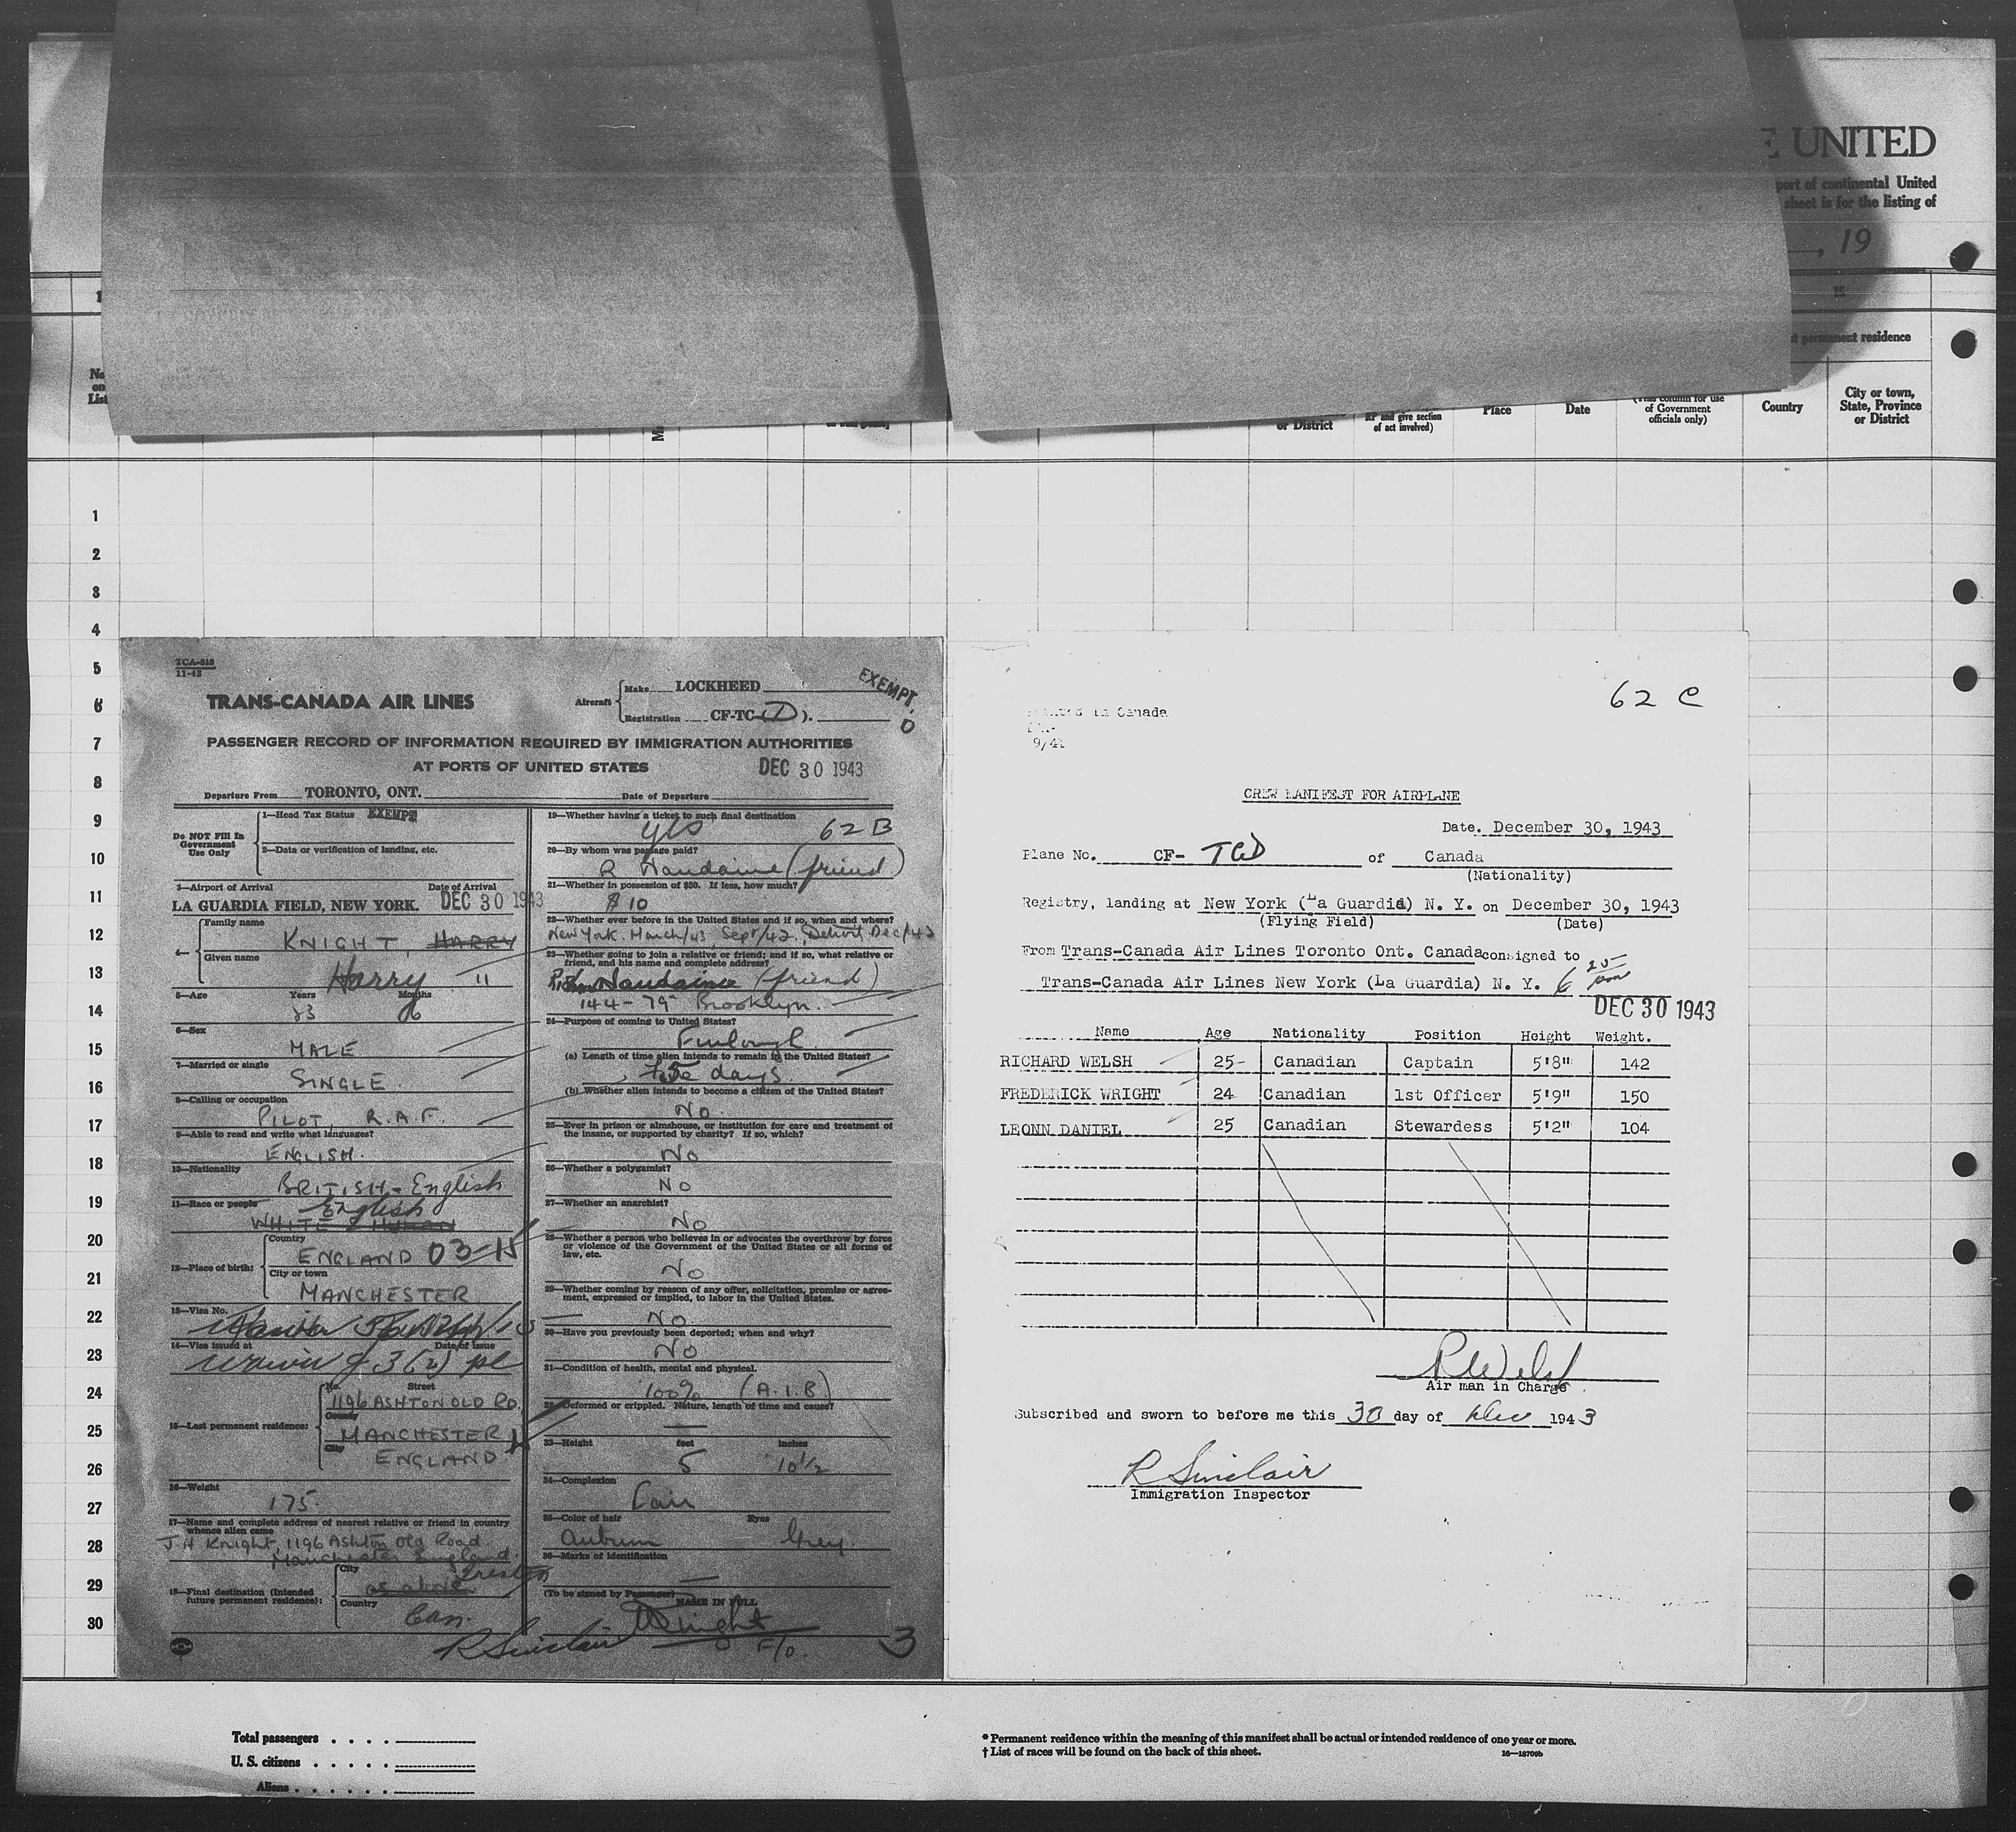 E UNITED
port of continental United
sheet is for the listing of
, 19
15
permanent residence
No.
on
List
or District
RP and give section
of act involved)
Place
Date
(This column for use
of Government
officials only)
Country
City or town,
State, Province
or District
1
2
3
4
5
6
7
8
9
10
11
12
13
14
15
16
17
18
19
20
21
22
23
24
25
26
27
28
29
30
TCA-518
11-42
TRANS-CANADA AIR LINES
Aircraft
Make LOCKHEED
Registration CF-TC-(D).
EXEMPT.
PASSENGER RECORD OF INFORMATION REQUIRED BY IMMIGRATION AUTHORITIES
AT PORTS OF UNITED STATES
DEC 30 1943
Departure From TORONTO, ONT. Date of Departure
Do NOT Fill In
Government
Use Only
1—Head Tax Status EXEMPT
2—Data or verification of landing, etc.
3—Airport of Arrival Date of Arrival
LA GUARDIA FIELD, NEW YORK. DEC 30 1943
4—
Family name
KNIGHT, HARRY
Given name
Harry "
5—Age Years Months
23 6
6—Sex
MALE
7—Married or single
SINGLE.
8—Calling or occupation
PILOT, R.A.F.
9—Able to read and write what languages?
ENGLISH.
10—Nationality
BRITISH - English
11—Race or people
English
WHITE
12—Place of birth:
Country
ENGLAND 03-15
City or town
MANCHESTER
13—Visa No.
14—Visa issued at Date of issue
9-3(2) pl
15—Last permanent residence:
No. Street
1196 ASHTON OLD RD.
County
MANCHESTER
City
ENGLAND
16—Weight
175.
17—Name and complete address of nearest relative or friend in country
whence alien came
J.H Knight, 1196 Ashton Old Road
Manchester England.
18—Final destination (Intended
future permanent residence):
City
as above
Country
Can.
19—Whether having a ticket to such final destination
yes 62 B
20—By whom was passage paid?
R (friend)
21—Whether in possession of $50. If less, how much?
$10
22—Whether ever before in the United States and if so, when and where?
New York. March/43, Sept/42, Detroit Dec/42
23—Whether going to join a relative or friend; and if so, what relative or
friend, and his name and complete address?
(friend)
144 - 79 Brooklyn.
24—Purpose of coming to United States?
Furlough.
(a) Length of time alien intends to remain in the United States?
days.
(b) Whether alien intends to become a citizen of the United States?
No.
25—Ever in prison or almshouse, or institution for care and treatment of
the insane, or supported by charity? If so, which?
No
26—Whether a polygamist?
No
27—Whether an anarchist?
No
28—Whether a person who believes in or advocates the overthrow by force
or violence of the Government of the United States or all forms of
law, etc.
No
29—Whether coming by reason of any offer, solicitation, promise or agree-
ment, expressed or implied, to labor in the United States.
No.
30—Have you previously been deported; when and why?
No
31—Condition of health, mental and physical.
100% (A.1.B)
32—Deformed or crippled. Nature, length of time and cause?
—
33—Height feet inches
5 10½
34—Complexion
Fair
35—Color of hair Eyes
auburn Grey
36—Marks of identification
—
(To be signed by Passenger)
NAME IN FULL
Knight
F/O.
R Sinclair
3
62 C
Printed in Canada
9/42
CREW MANIFEST FOR AIRPLANE
Date. December 30, 1943
Plane No. CF- TCD of Canada
(Nationality)
Registry, landing at New York (La Guardia) N. Y. on December 30, 1943
(Flying Field) (Date)
From Trans-Canada Air Lines Toronto Ont. Canada consigned to
Trans-Canada Air Lines New York (La Guardia) N. Y. 6 25 pm
DEC 30 1943
Name Age Nationality Position Height Weight.
RICHARD WELSH 25- Canadian Captain 5'8" 142
FREDERICK WRIGHT 24 Canadian 1st Officer 5'9" 150
LEONN DANIEL 25 Canadian Stewardess 5'2" 104
R Welsh
Air man in Charge
Subscribed and sworn to before me this 30 day of Dec 1943
R Sinclair
Immigration Inspector
Total passengers . . . .
U. S. citizens . . . . .
Aliens . . . . . .
* Permanent residence within the meaning of this manifest shall be actual or intended residence of one year or more.
† List of races will be found on the back of this sheet.
16—18706b